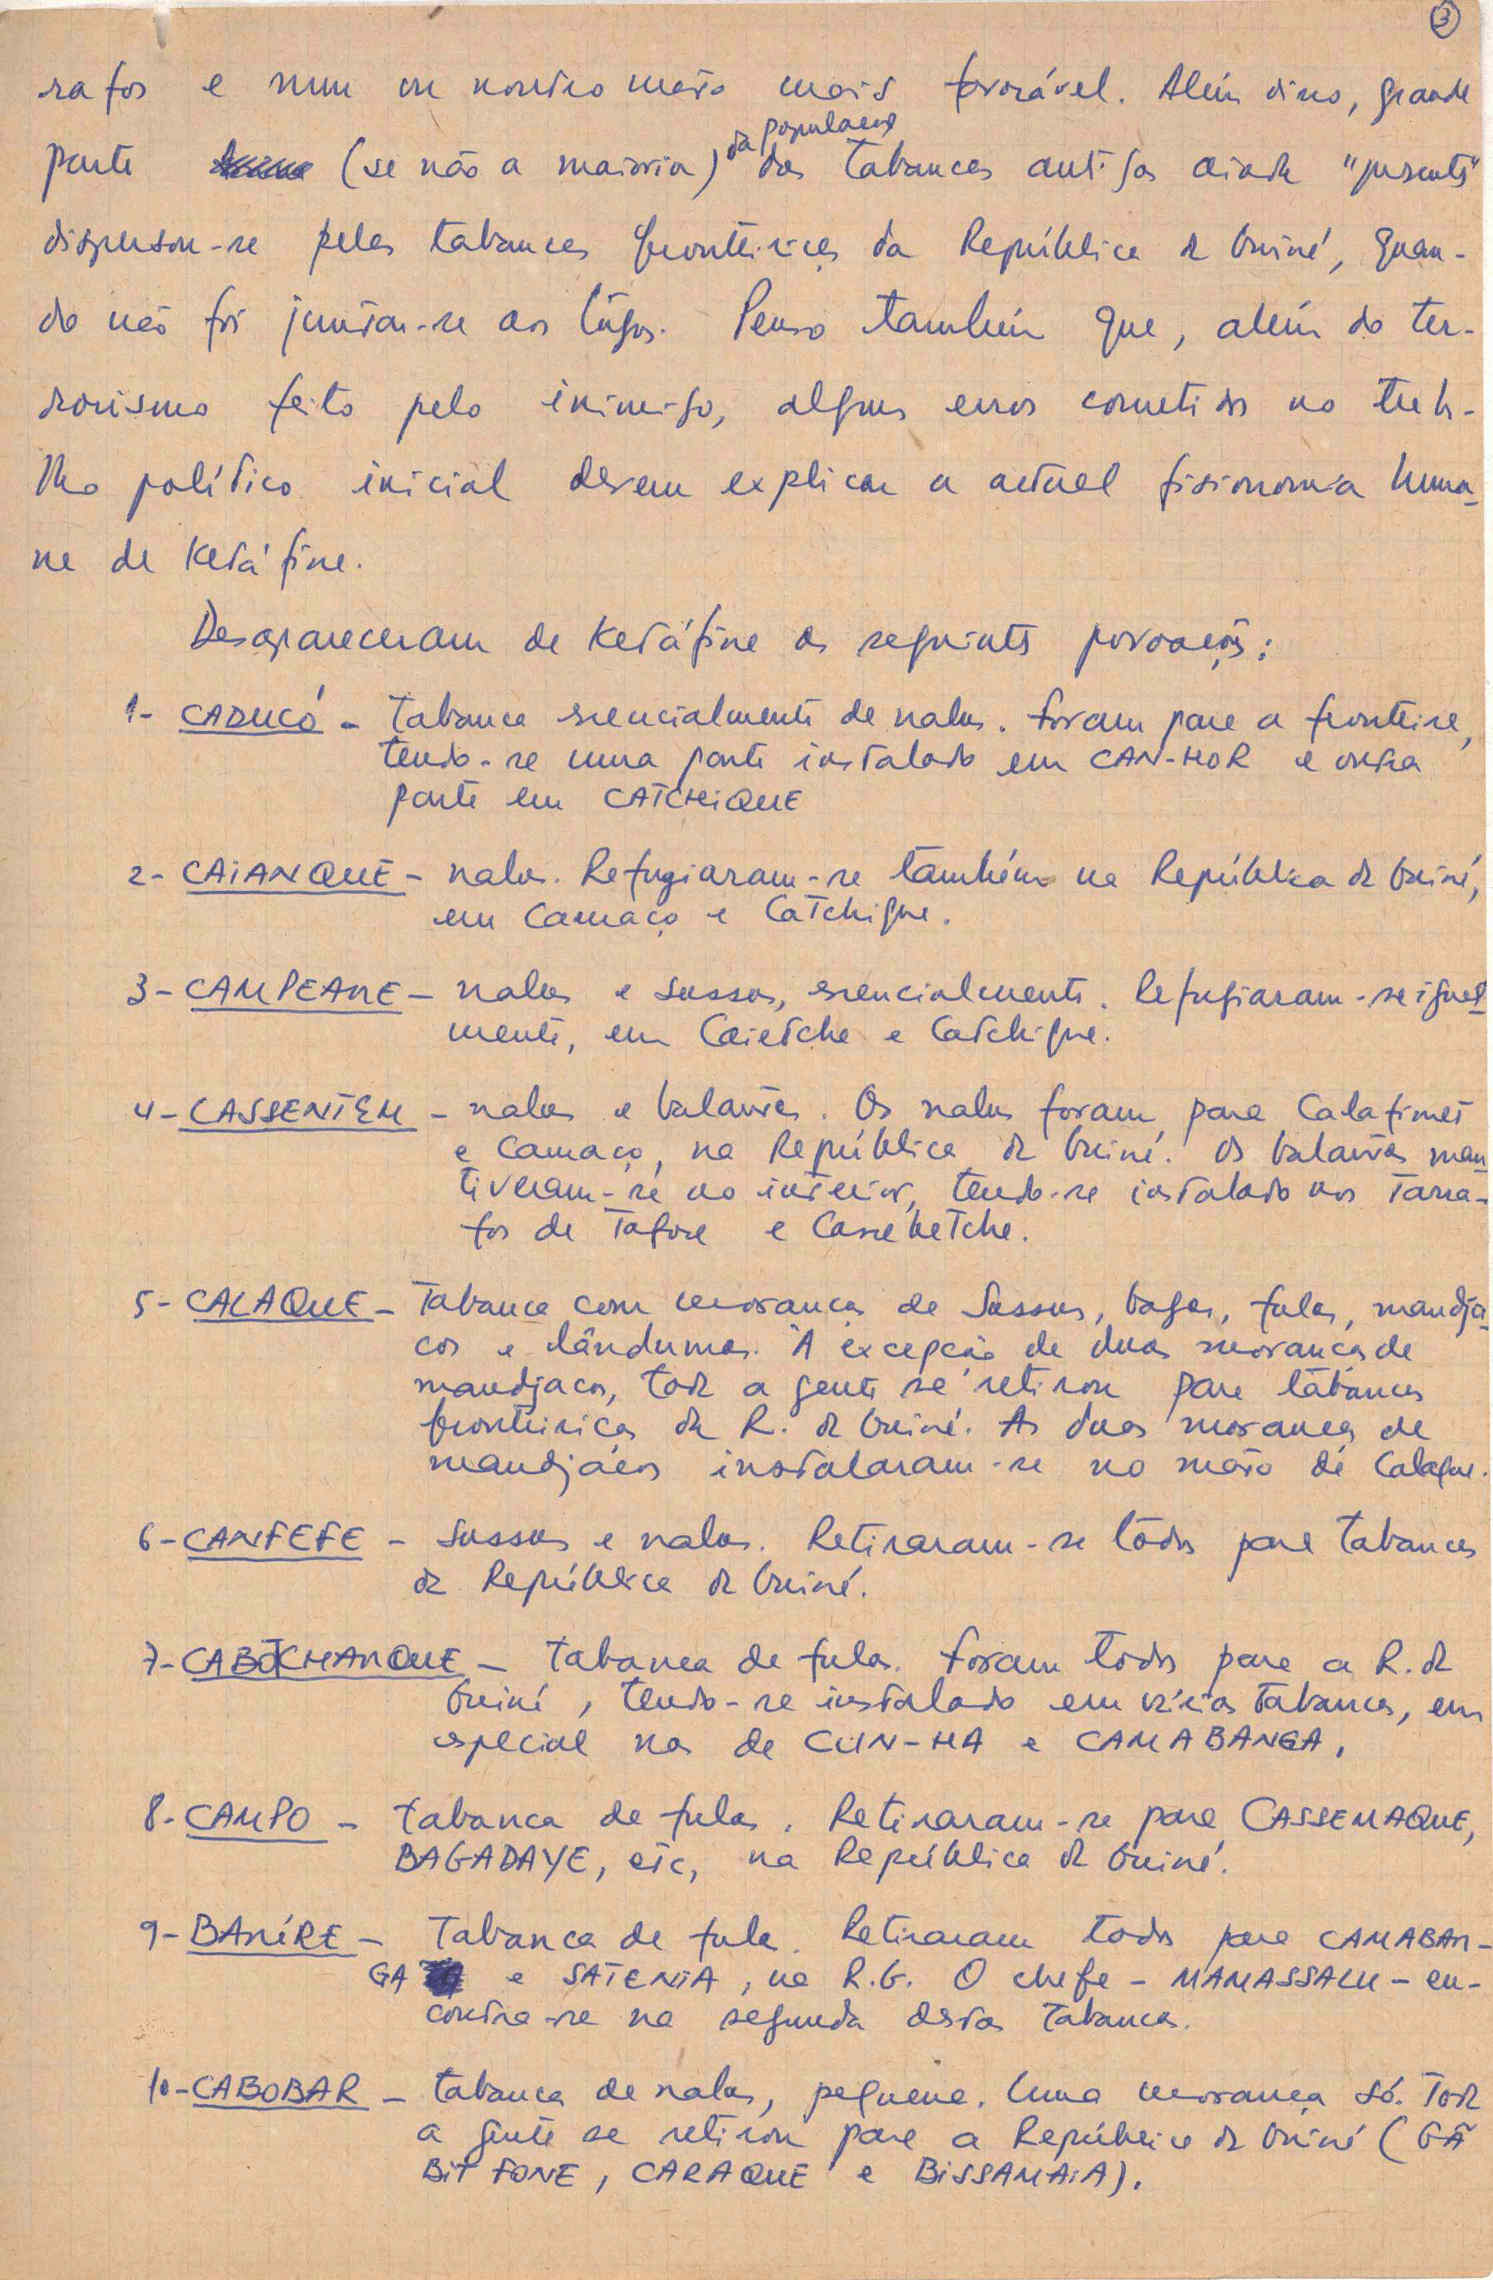 3
rafos e num ou noutro mato mais favorável. Além disso, grande
parte (se não a maioria) da população das tabancas antigas ainda "presente"
dispersou-se pelas tabancas fronteiriças da República da Guiné, quan-
do não foi juntar-se aos tugas. Penso também que, além do ter-
rorismo feito pelo inimigo, alguns erros cometidos no traba-
lho político inicial devem explicar a actual fisionomia huma-
na de Ketáfine.
Desapareceram de Ketáfine as seguintes povoações:
1- CADUCÓ - Tabanca essencialmente de nalus. Foram para a fronteira,
tendo-se uma parte instalado em CAN-HOR e outra
parte em CATCHIQUE
2- CAIANQUE - nalus. Refugiaram-se também na República da Guiné,
em Camaço e Catchique.
3- CAMPEANE - nalus e sossos, essencialmente. Refugiaram-se igual-
mente, em Caietche e Catchique.
4- CASSENTEM - nalus e balantas. Os nalus foram para Calafimet
e Camaço, na República da Guiné. Os balantas man-
tiveram-se no interior, tendo-se instalado nos tarra-
fos de Tafore e Cassebetche.
5- CALAQUE - Tabanca com moranças de sossos, bagas, fulas, mandja-
cos e lândumas. À excepção de duas moranças de
mandjacos, toda a gente se retirou para tabancas
fronteiriças da R. da Guiné. As duas moranças de
mandjacos instalaram-se no mato de Calaque.
6- CANFEFE - Sossos e nalus. Retiraram-se todos para tabancas
da República da Guiné.
7- CABOTCHANQUE - Tabanca de fulas. Foram todos para a R. da
Guiné, tendo-se instalado em várias tabancas, em
especial nas de CUN-HA e CAMABANGA.
8- CAMPO - tabanca de fulas. Retiraram-se para CASSEMAQUE,
BAGADAYE, etc, na República da Guiné.
9- BANIRE - Tabanca de fula. Retiraram todos para CAMABAN-
GA e SATENIA, na R.G. O chefe - MAMASSALU - en-
contra-se na segunda destas tabancas.
10- CABOBAR - tabanca de nalus, pequena. Uma morança só. Toda
a gente se retirou para a República da Guiné (GÃ
BIT FONE, CARAQUE e BISSAMAIA).